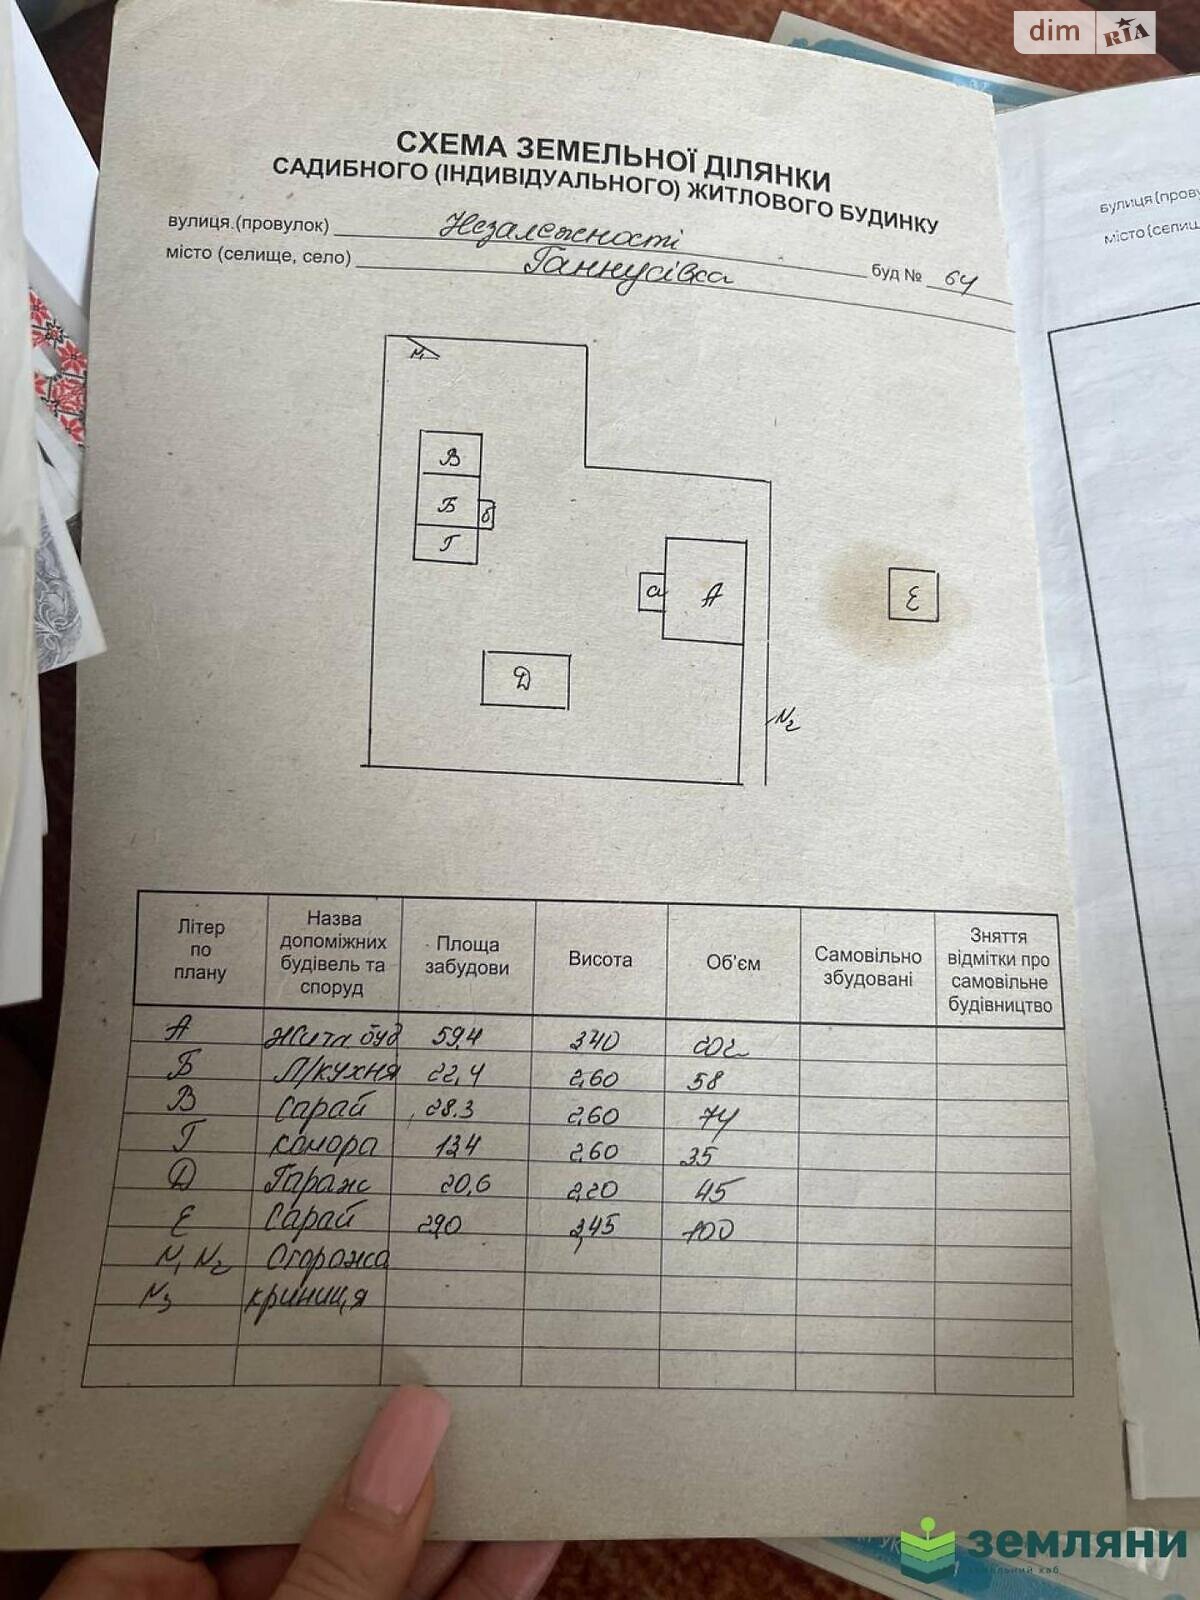 dim RIA
СХЕМА ЗЕМЕЛЬНОЇ ДІЛЯНКИ
САДИБНОГО (ІНДИВІДУАЛЬНОГО) ЖИТЛОВОГО БУДИНКУ
вулиця.(провулок) Незалежності
місто (селище, село) Ганнусівка буд № 64
вулиця (прову
місто (селищ
N1
В
Б б
Г
а А
Е
Д
N2
Літер по плану Назва допоміжних будівель та споруд Площа забудови Висота Об'єм Самовільно збудовані Зняття відмітки про самовільне будівництво
А Жита буд 59,4 3,40 202
Б Л/кухня 22,4 2,60 58
В Сарай 28.3 2,60 74
Г комора 13,4 2,60 35
Д Гараж 20,6 2,20 45
Е Сарай 29,0 3,45 100
N1 N2 Огорожа
N3 криниця
земляни
земельний хаб